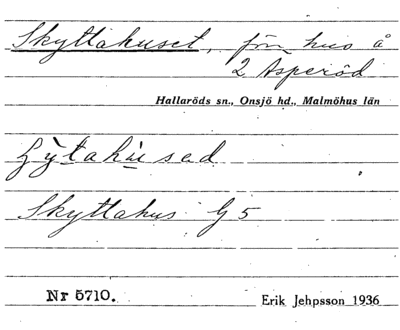 Skyttahuset, förr hus å
2 Asperöd
Hallaröds sn., Onsjö hd., Malmöhus län
Skyttahus G 5
Nr 5710.
Erik Jehpsson 1936